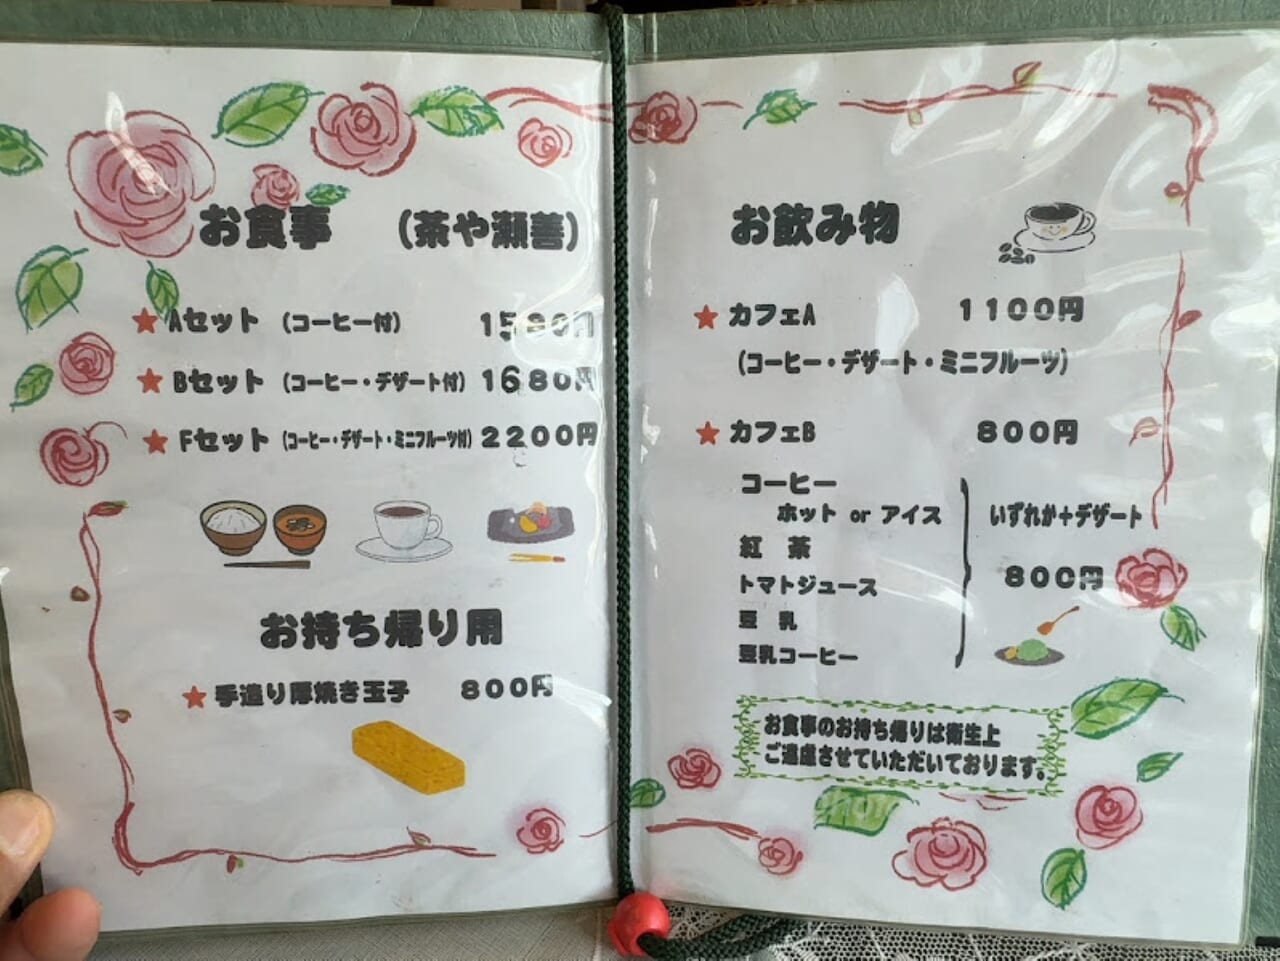 お食事 (茶や瀬善)
★ Aセット (コーヒー付) 1580円
★ Bセット (コーヒー・デザート付) 1680円
★ Fセット (コーヒー・デザート・ミニフルーツ付) 2200円
お持ち帰り用
★ 手造り厚焼き玉子 800円
お飲み物
★ カフェA 1100円
(コーヒー・デザート・ミニフルーツ)
★ カフェB 800円
コーヒー
ホット or アイス
紅 茶
トマトジュース
豆 乳
豆乳コーヒー
いずれか+デザート
800円
お食事のお持ち帰りは衛生上
ご遠慮させていただいております。